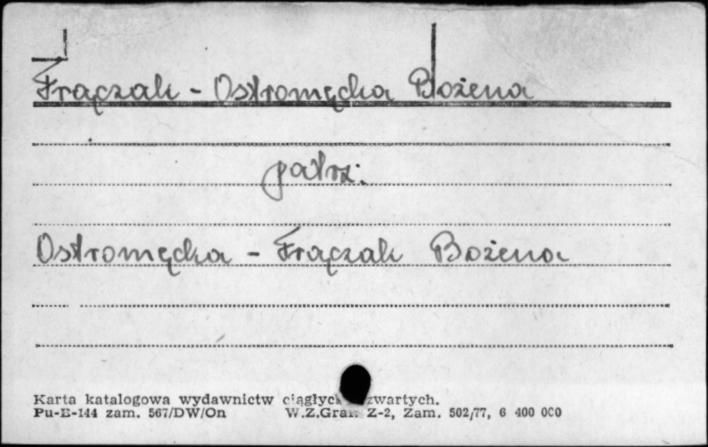 Frączak - Ostromęcka Bożena
patrz:
Ostromęcka - Frączak Bożena
Karta katalogowa wydawnictw ciągłych zwartych.
Pu-B-144 zam. 567/DW/On W.Z.Graf. Z-2, Zam. 502/77, 6 400 000